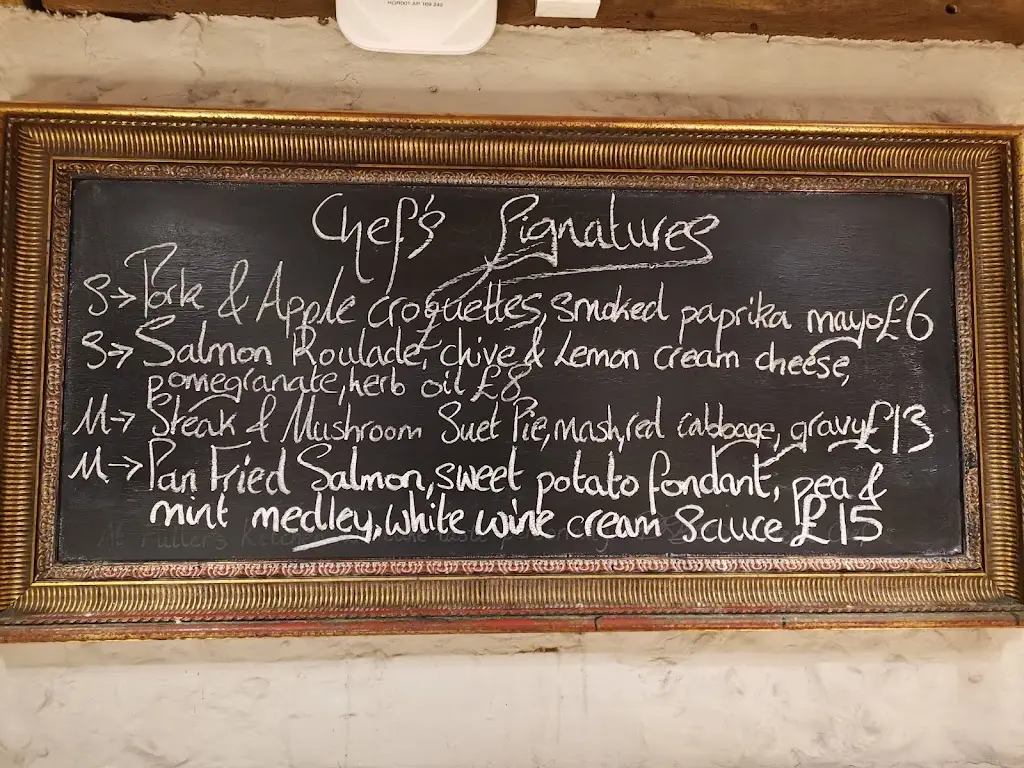 HOR001 AP 169 242
Chef's Signatures
S→ Pork & Apple croquettes, smoked paprika mayo £6
S→ Salmon Roulade, chive & Lemon cream cheese,
pomegranate, herb oil £8
M→ Steak & Mushroom Suet Pie, mash, red cabbage, gravy £13
M→ Pan Fried Salmon, sweet potato fondant, pea &
mint medley, white wine cream sauce £15
At Fuller's Kitchen